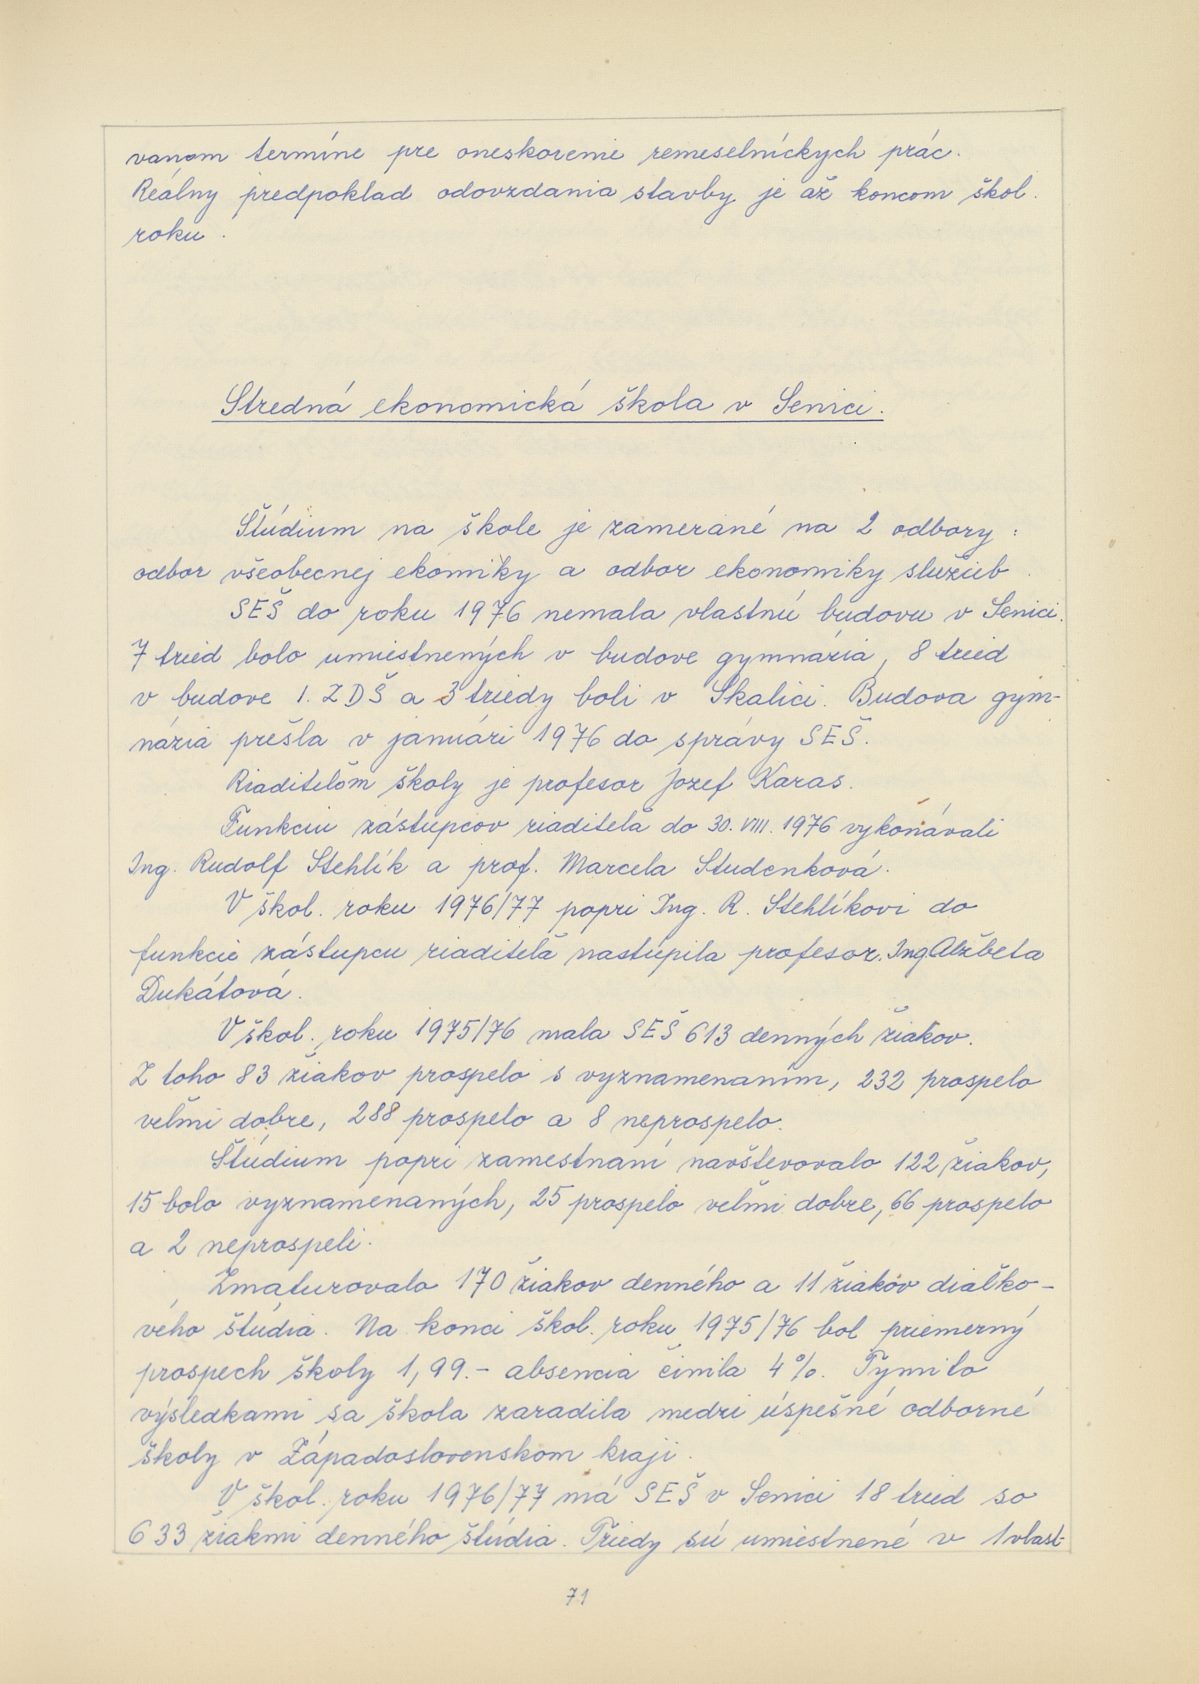 vanom termíne pre oneskorenie remeselníckych prác.
Reálny predpoklad odovzdania stavby je až koncom škol.
roku.
Stredná ekonomická škola v Senici.
Štúdium na škole je zamerané na 2 odbory:
odbor všeobecnej ekomiky a odbor ekonomiky služieb.
SEŠ do roku 1976 nemala vlastnú budovu v Senici.
7 tried bolo umiestnených v budove gymnázia, 8 tried
v budove 1. ZDŠ a 3 triedy boli v Skalici. Budova gym-
názia prešla v januári 1976 do správy SEŠ.
Riaditeľom školy je profesor Jozef Karas.
Funkciu zástupcov riaditeľa do 30. VIII. 1976 vykonávali
Ing. Rudolf Stehlík a prof. Marcela Studenková.
V škol. roku 1976/77 popri Ing. R. Stehlíkovi do
funkcie zástupcu riaditeľa nastúpila profesor. Ing Alžbeta
Dukátová.
V škol. roku 1975/76 mala SEŠ 613 denných žiakov.
Z toho 83 žiakov prospelo s vyznamenaním, 232 prospelo
veľmi dobre, 288 prospelo a 8 neprospelo.
Štúdium popri zamestnaní navštevovalo 122 žiakov,
15 bolo vyznamenaných, 25 prospelo veľmi dobre, 66 prospelo
a 2 neprospeli.
Zmaturovalo 170 žiakov denného a 11 žiakov diaľko-
vého štúdia. Na konci škol. roku 1975/76 bol priemerný
prospech školy 1,99.- absencia činila 4%. Týmito
výsledkami sa škola zaradila medzi úspešné odborné
školy v Západoslovenskom kraji.
V škol. roku 1976/77 má SEŠ v Senici 18 tried so
633 žiakmi denného štúdia. Triedy sú umiestnené v 1 vlast-
71